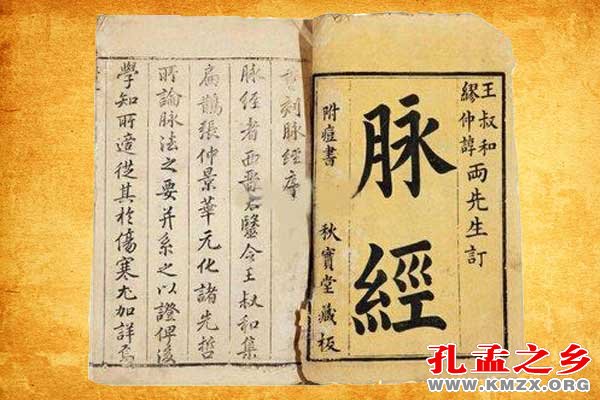 王叔和
繆仲諄
両先生訂
脉經
附痘書 秋實堂藏板
刻脉經序
脉經者西晉太醫令王叔和集
扁鵲張仲景華元化諸先哲
所論脉法之要并系之以證俾後
學知所適從其於傷寒尤加詳焉
孔孟之乡
WWW.KMZX.ORG